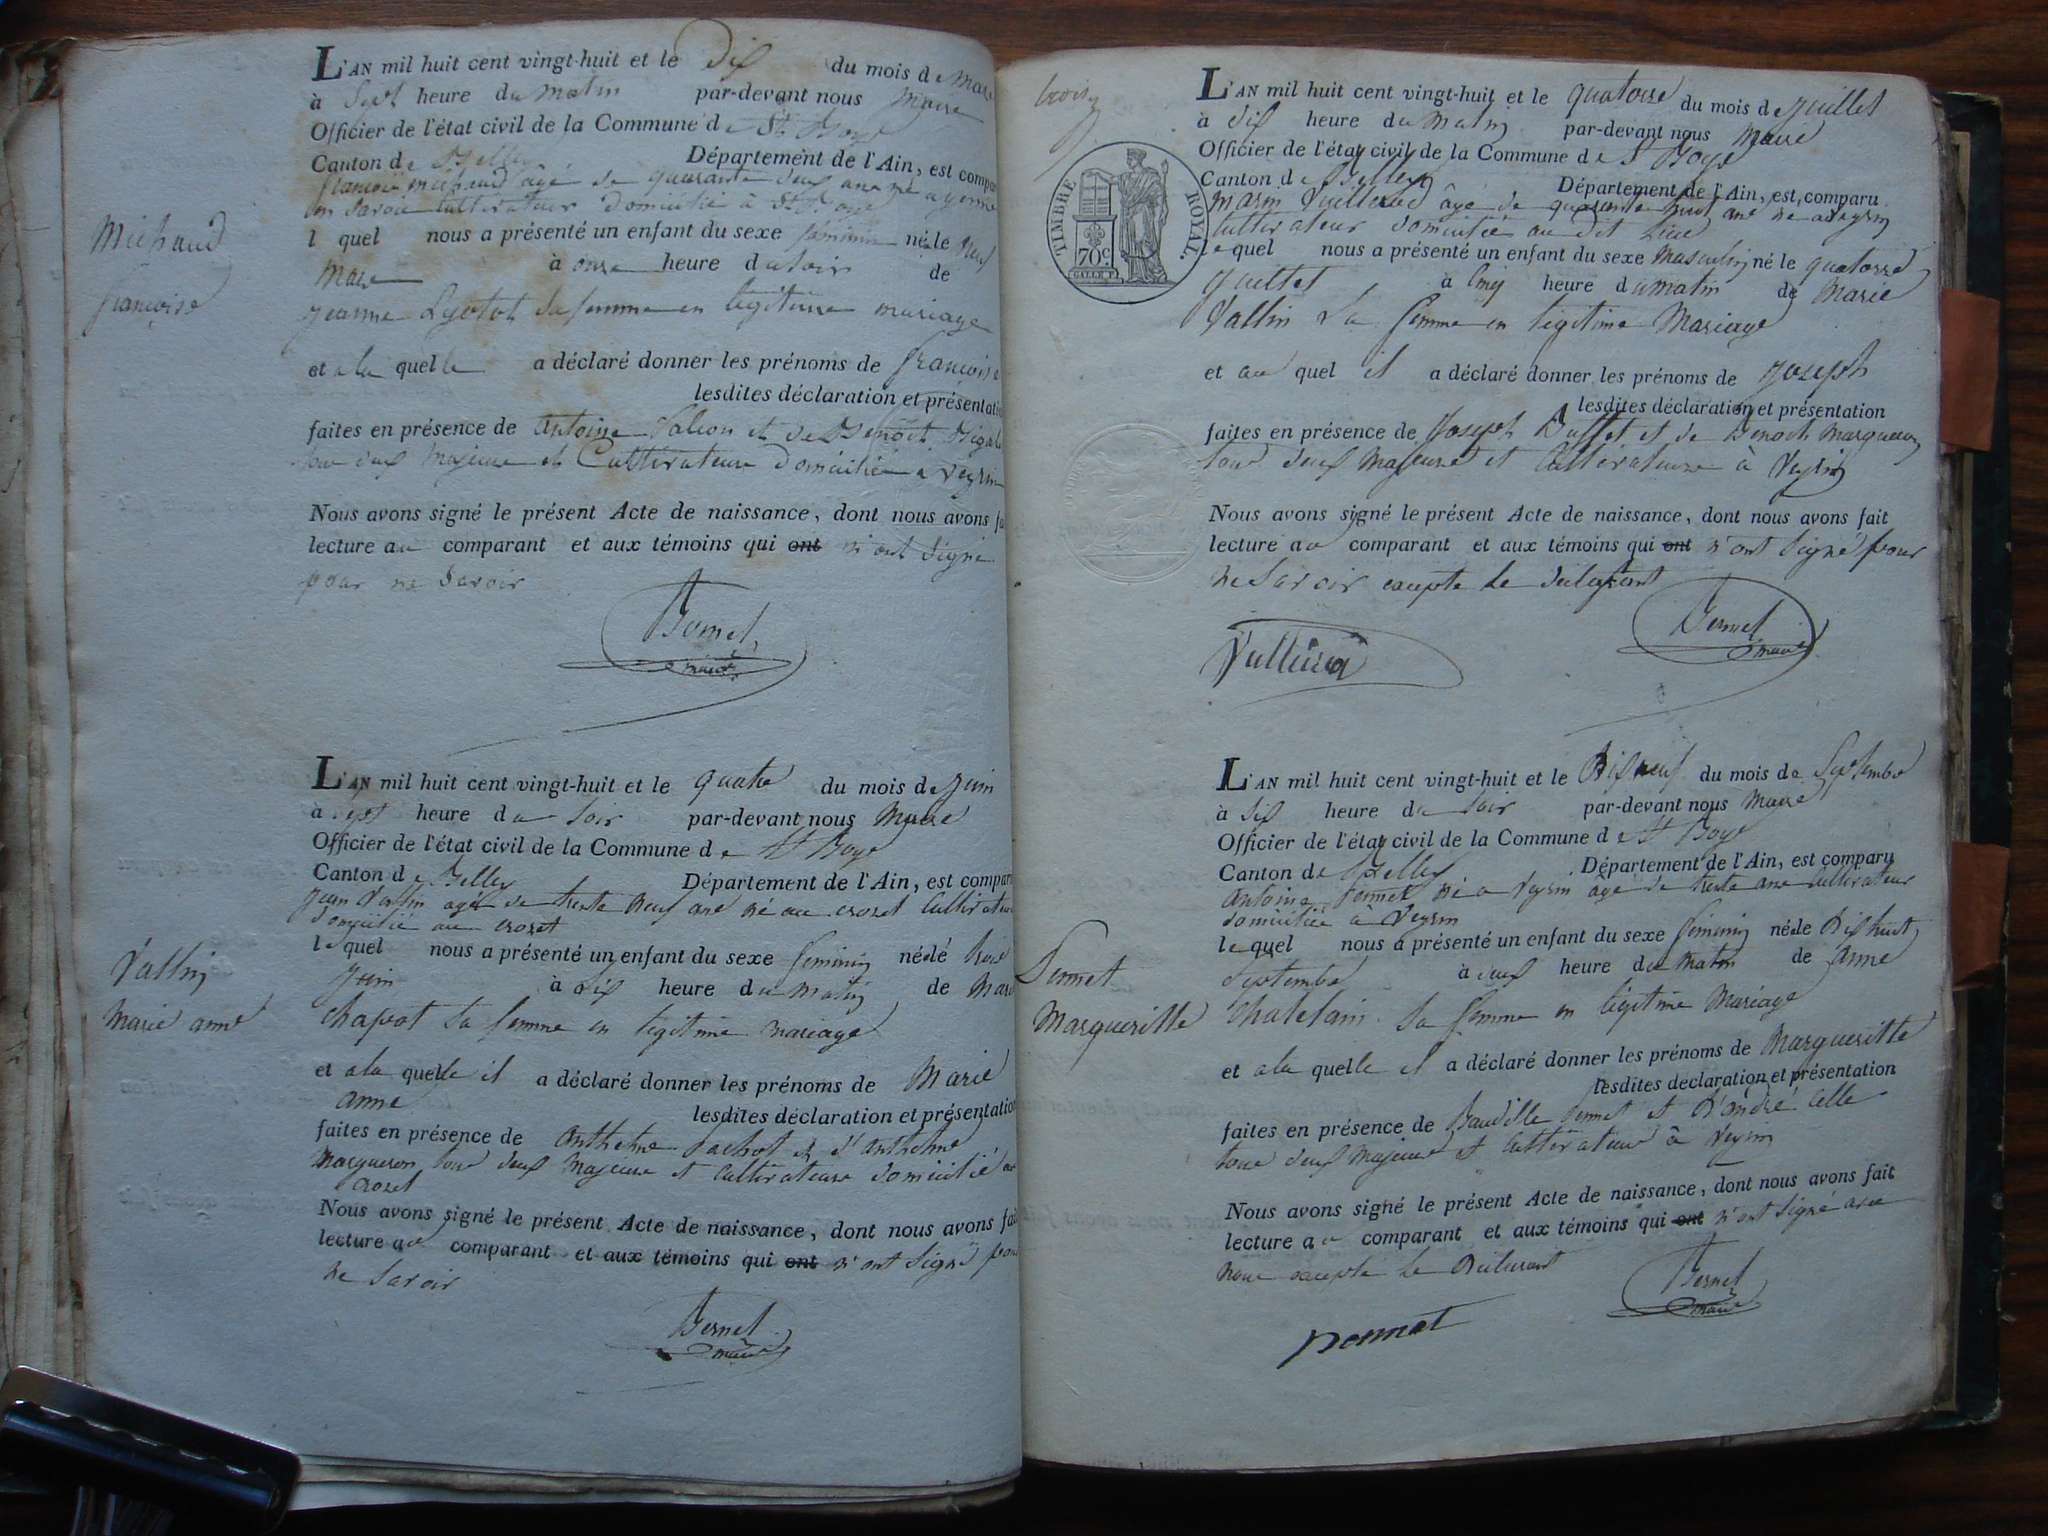 L'AN mil huit cent vingt-huit et le dix du mois de mars
à Sept heure du matin par-devant nous maire
Officier de l'état civil de la Commune de St. Boys
Canton de Belley Département de l'Ain, est compar
françois michaud âgé de quarante deux ans né a yenne
en Savoie cultivateur domicilié à St. Boys
l quel nous a présenté un enfant du sexe féminin né le neuf
mars à onze heure du soir de
jeanne sa femme en légitime mariage
et a la quelle a déclaré donner les prénoms de françoise
lesdites déclaration et présentatio
faites en présence de antoine et de Benoit
tous deux majeurs et Cultivateurs domiciliés a Veyrin
Nous avons signé le présent Acte de naissance, dont nous avons fa
lecture au comparant et aux témoins qui ont n'ont signé
pour ne savoir
Bernel
maire
Michaud
françoise
L'AN mil huit cent vingt-huit et le quatre du mois de juin
à Sept heure du soir par-devant nous Maire
Officier de l'état civil de la Commune de St Boys
Canton de Belley Département de l'Ain, est compar
jean Vallin agé de trente neuf ans né au crozet Cultivateur
domicilié au crozet
le quel nous a présenté un enfant du sexe féminin né le trois
juin à dix heure du matin de Marie
chapot sa femme en légitime mariage
et a la quelle il a déclaré donner les prénoms de Marie
anne lesdites déclaration et présentation
faites en présence de anthelme pachot et d'anthelme
Marqueron tous deux majeurs et cultivateurs domicilié au
crozet
Nous avons signé le présent Acte de naissance, dont nous avons fai
lecture au comparant et aux témoins qui ont n'ont signé pour
ne savoir
Bernel
maire
Vallin
Marie anne
trois
TIMBRE ROYAL.
70c.
L'AN mil huit cent vingt-huit et le quatorze du mois de juillet
à dix heure du matin par-devant nous maire
Officier de l'état civil de la Commune de St Boys
Canton de Belley Département de l'Ain, est comparu
marin Vuillerod âgé de quarante huit ans né a veyrin
cultivateur domicilié au dit lieu
le quel nous a présenté un enfant du sexe masculin né le quatorze
juillet à cinq heure du matin de Marie
Vallin sa femme en légitime Mariage
et au quel il a déclaré donner les prénoms de joseph
lesdites déclaration et présentation
faites en présence de Joseph Buffet et de Benoit marqueron
tous deux majeurs et cultivateurs à Veyrin
Nous avons signé le présent Acte de naissance, dont nous avons fait
lecture au comparant et aux témoins qui ont n'ont signé pour
ne savoir excepté le déclarant
Bernel
maire
L'AN mil huit cent vingt-huit et le Dix neuf du mois de Septembre
à dix heure du soir par-devant nous maire
Officier de l'état civil de la Commune de St Boys
Canton de Belley Département de l'Ain, est comparu
antoine pennet né a veyrin âgé de trente ans cultivateur
domicilié à Veyrin
le quel nous a présenté un enfant du sexe féminin né le Dix huit
Septembre à deux heure du matin de anne
Chatelain sa femme en légitime Mariage
et a la quelle il a déclaré donner les prénoms de Margueritte
lesdites déclaration et présentation
faites en présence de Baudille pennet et D'andré Celle
tous deux majeurs et cultivateurs à Veyrin
Nous avons signé le présent Acte de naissance, dont nous avons fait
lecture au comparant et aux témoins qui ont n'ont signé avec
nous excepté le Déclarant
Bernel
maire
pennet
Pennet
Margueritte